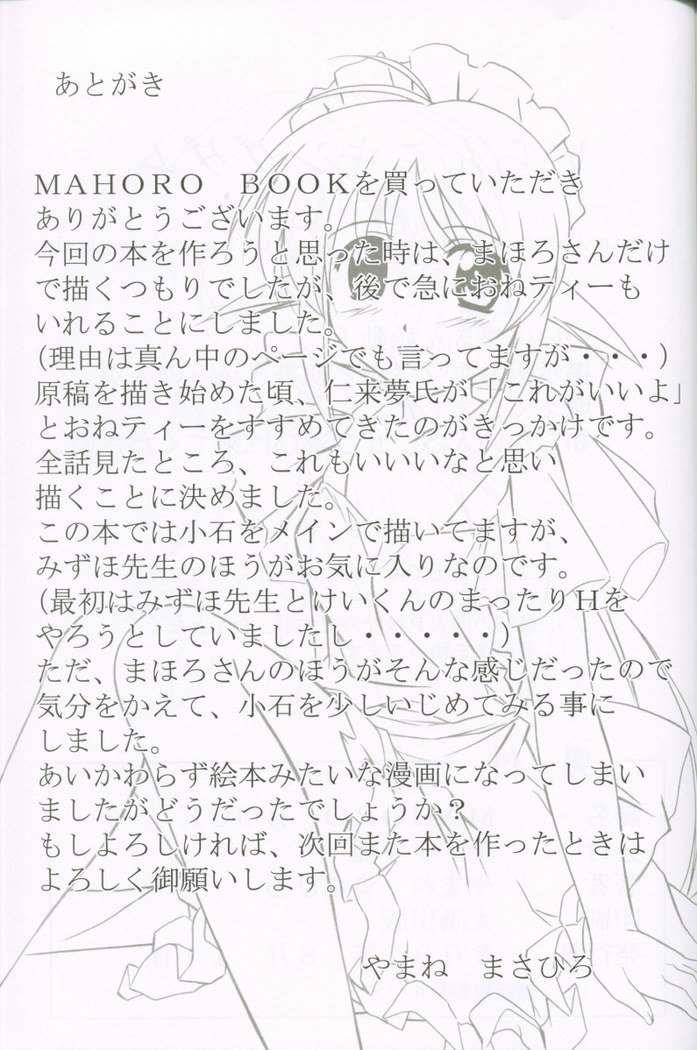 あとがき
ＭＡＨＯＲＯ　ＢＯＯＫを買っていただき
ありがとうございます。
今回の本を作ろうと思った時は、まほろさんだけ
で描くつもりでしたが、後で急におねティーも
いれることにしました。
(理由は真ん中のページでも言ってますが・・・)
原稿を描き始めた頃、仁来夢氏が「これがいいよ」
とおねティーをすすめてきたのがきっかけです。
全話見たところ、これもいいいなと思い
描くことに決めました。
この本では小石をメインで描いてますが、
みずほ先生のほうがお気に入りなのです。
(最初はみずほ先生とけいくんのまったりＨを
やろうとしていましたし・・・・・)
ただ、まほろさんのほうがそんな感じだったので
気分をかえて、小石を少しいじめてみる事に
しました。
あいかわらず絵本みたいな漫画になってしまい
ましたがどうだったでしょうか？
もしよろしければ、次回また本を作ったときは
よろしく御願いします。
やまね　まさひろ